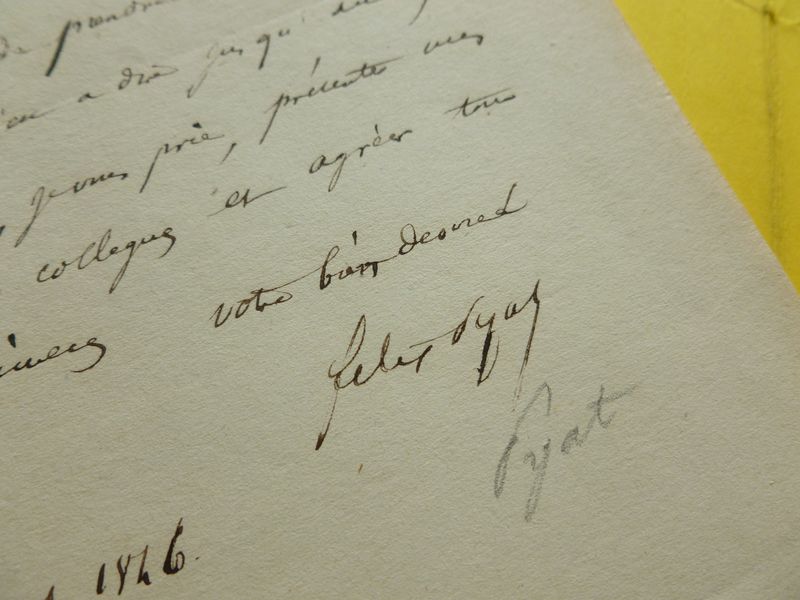 de prendre
a dire jusqu'
je vous prie, présenter mes
collegues et agréer tous
votre bien devoué
felix Pyat
Pyat
1846.